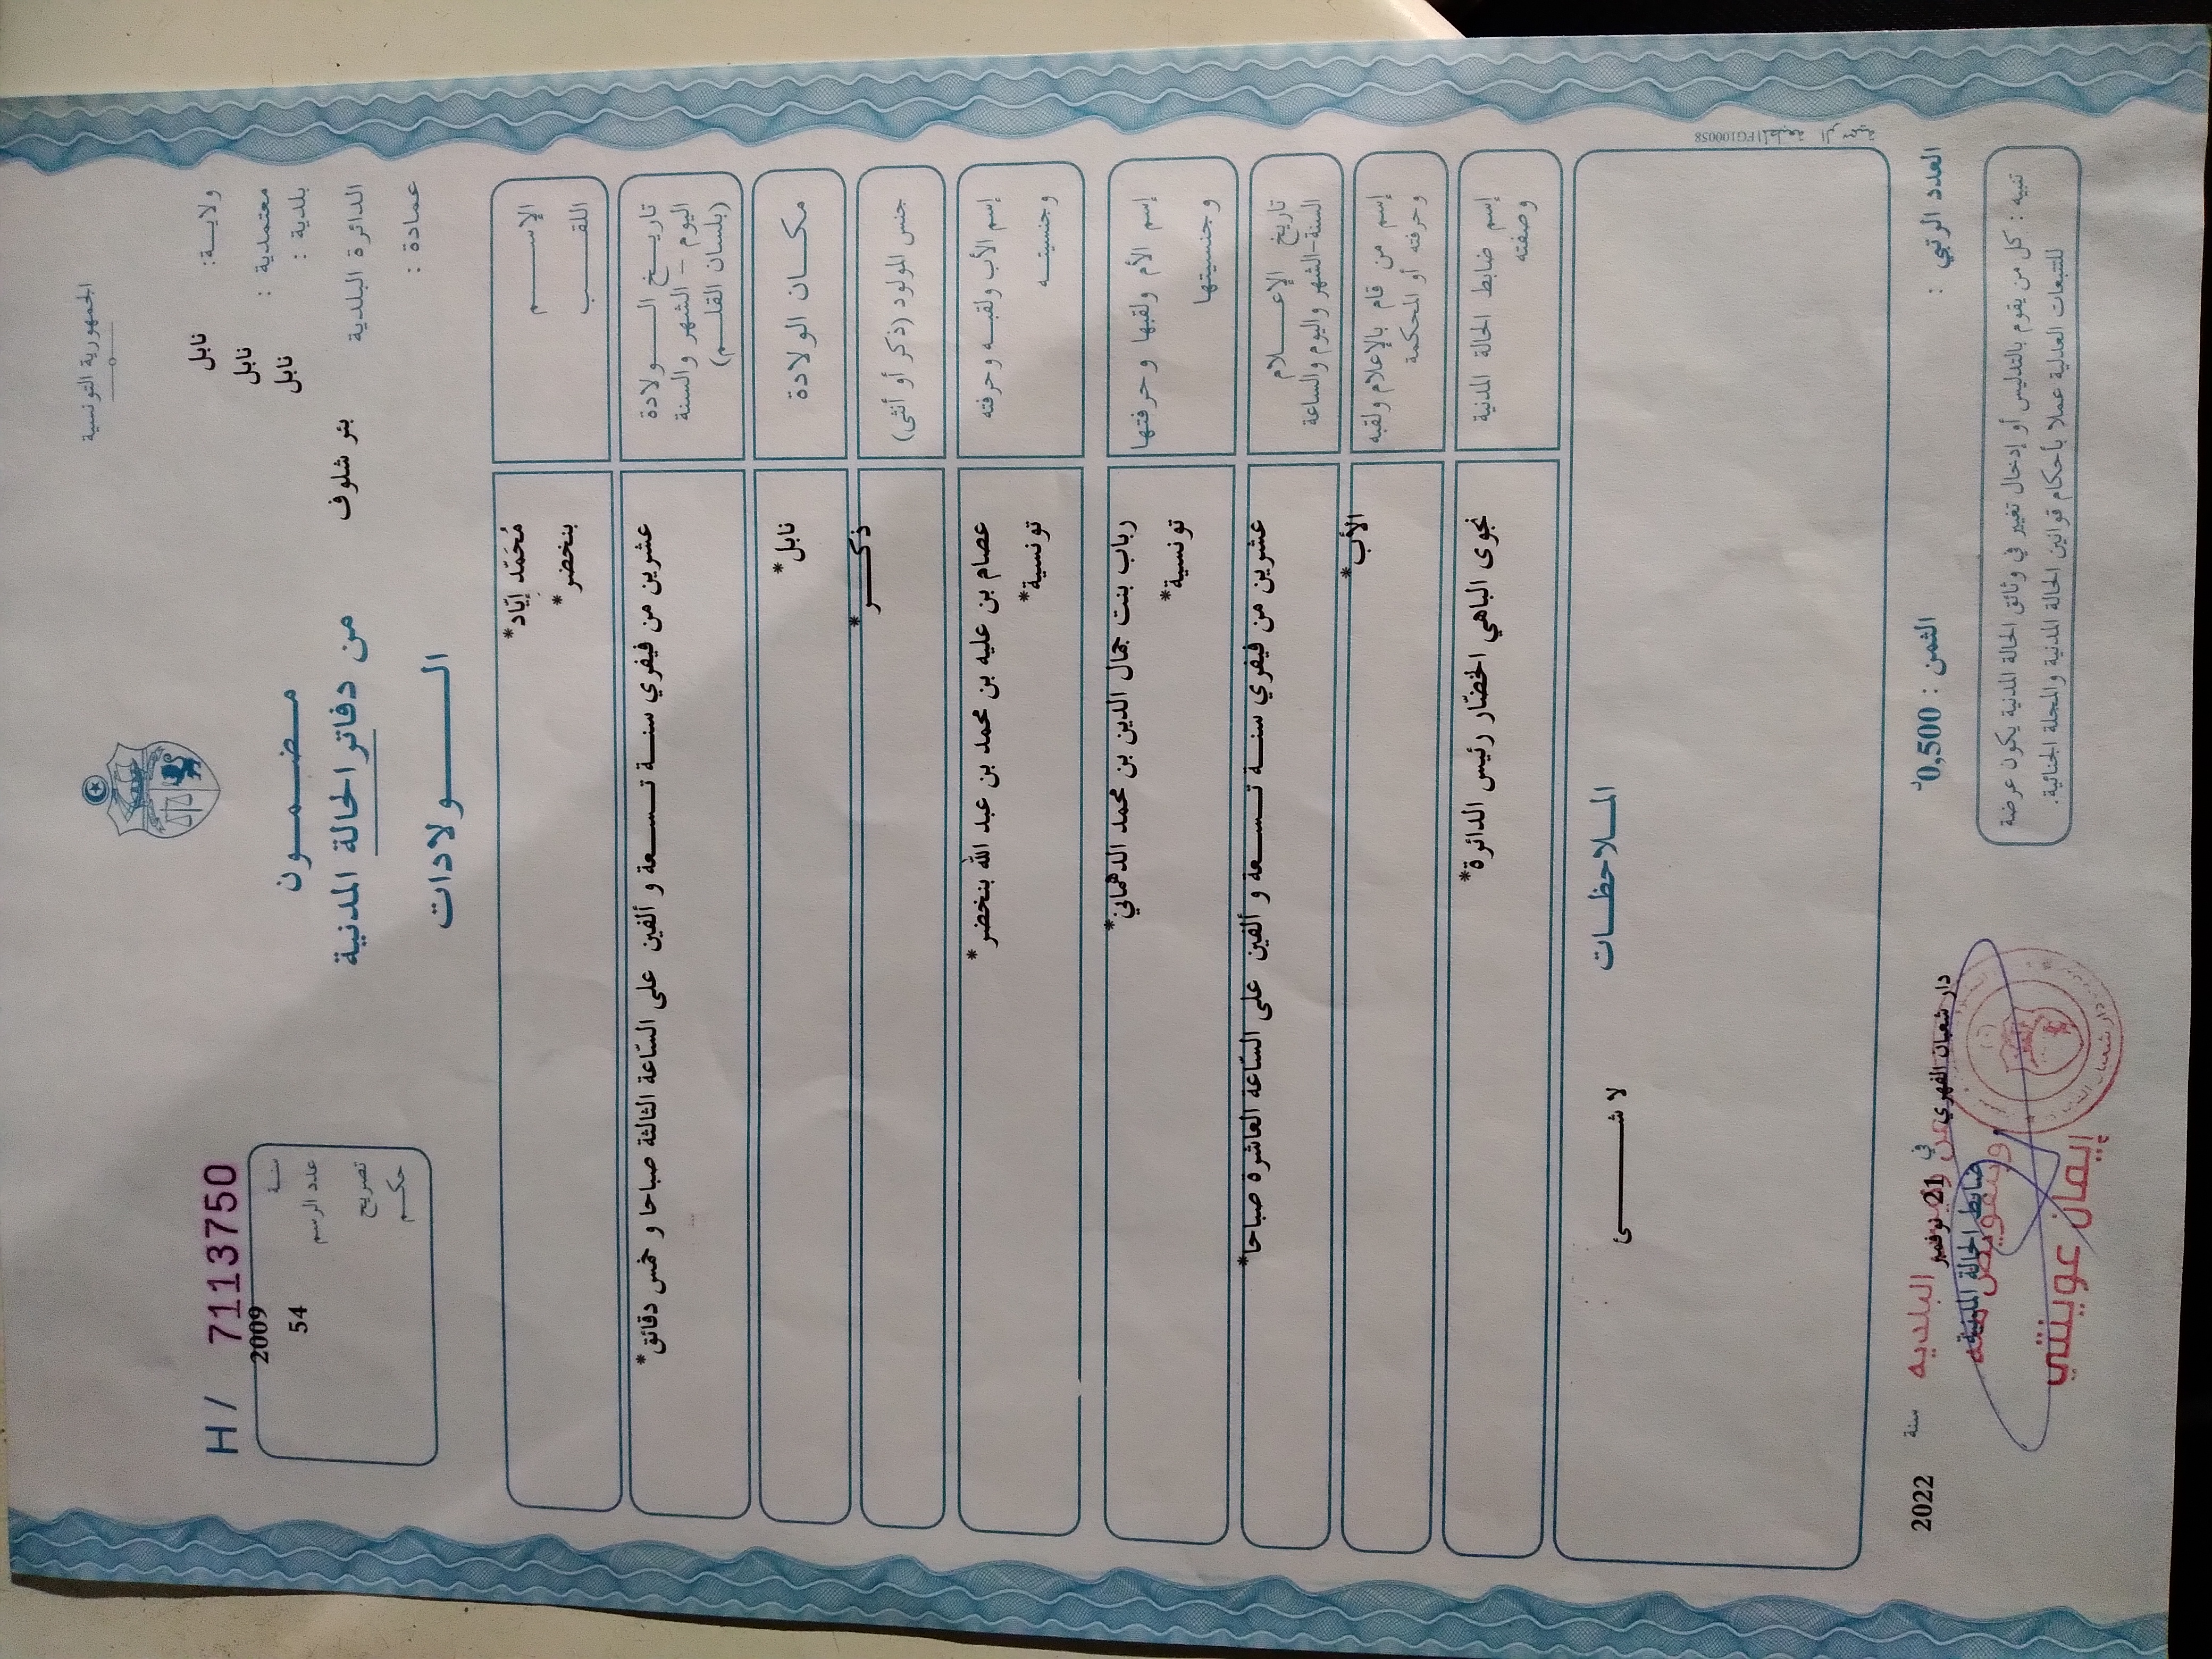 الجمهورية التونسية
ولايـــة: نابل
معتمدية : نابل
بلدية : نابل
الدائرة البلدية بئر شلوف
عمادة :
H / 71113750
سنـة 2009
عدد الرسم 54
تصريح
حكـم
مـضـمـون
من دفاتر الحالة المدنية
الـــولادات
الإســـم مُحَمّد إيّاد*
اللقـــب بنخضر*
تاريـــخ الـــولادة عشرين من فيفري سنـة تـسـعة و ألفين على السّاعة الثالثة صباحا و خمس دقائق*
اليوم - الشهر والسنة
(بلسان القلـم)
مكـــان الولادة نابل*
جنس المولود (ذكر أو أنثى) ذكـــر*
إسم الأب ولقبـه وحرفته عصام بن عليه بن محمد بن عبد الله بنخضر*
وجنسيتـه تونسية*
إسم الأم ولقبها وحرفتها رباب بنت جمال الدين بن محمد الدهماني*
وجنسيتها تونسية*
تاريخ الإعـــلام عشرين من فيفري سنـة تـسـعة و ألفين على السّاعة العاشرة صباحا*
السنة-الشهر واليوم والساعة
إسم من قام بالإعلام ولقبه الأب*
وحرفته أو المحكمة
إسم ضابط الحالة المدنية نجوى الباهي الخضّار رئيس الدائرة*
وصفته
المـلاحظـات
لا شـــئ
المطبعة الرسمية FG100058
العدد الرتبي :
الثمن : 0,500د
دار شعبان الفهري في 21 نوفمبر سنة 2022
ضابط الحالة المدنية
البلدية
إيمان عوينتي
تنبيه : كل من يقوم بالتدليس أو إدخال تغيير في وثائق الحالة المدنية يكون عرضة
للتتبعات العدلية عملا بأحكام قوانين الحالة المدنية والمجلة الجنائية.